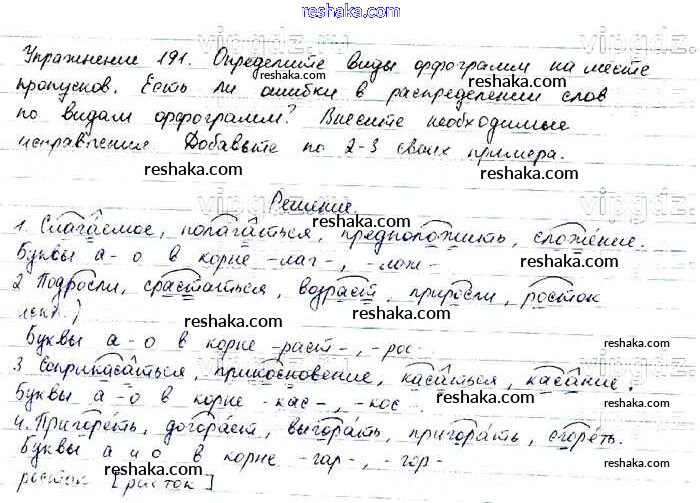 reshaka.com
Упражнение 191. Определите виды орфограмм на месте
пропусков. Есть ли ошибки в распределении слов
reshaka.com
по видам орфограмм? Внесите необходимые
исправления. Добавьте по 2-3 своих примера.
reshaka.com reshaka.com
Решение
1. Слагаемое, полагаться, предположить, сложение.
reshaka.com reshaka.com
Буквы а-о в корне -лаг-, лож-
2 Подросли, срастаться, возраст, приросли, росток
reshaka.com reshaka.com
Буквы а-о в корне -раст-, -рос-
3 Соприкасаться, прикосновение, касаться, касание.
reshaka.com reshaka.com
Буквы а-о в корне -кас-, -кос-
4. Пригореть, догорает, выгорать, пригорать, сгореть.
Буквы а и о в корне -гар-, -гор-
reshaka.com reshaka.com
росток [расток]